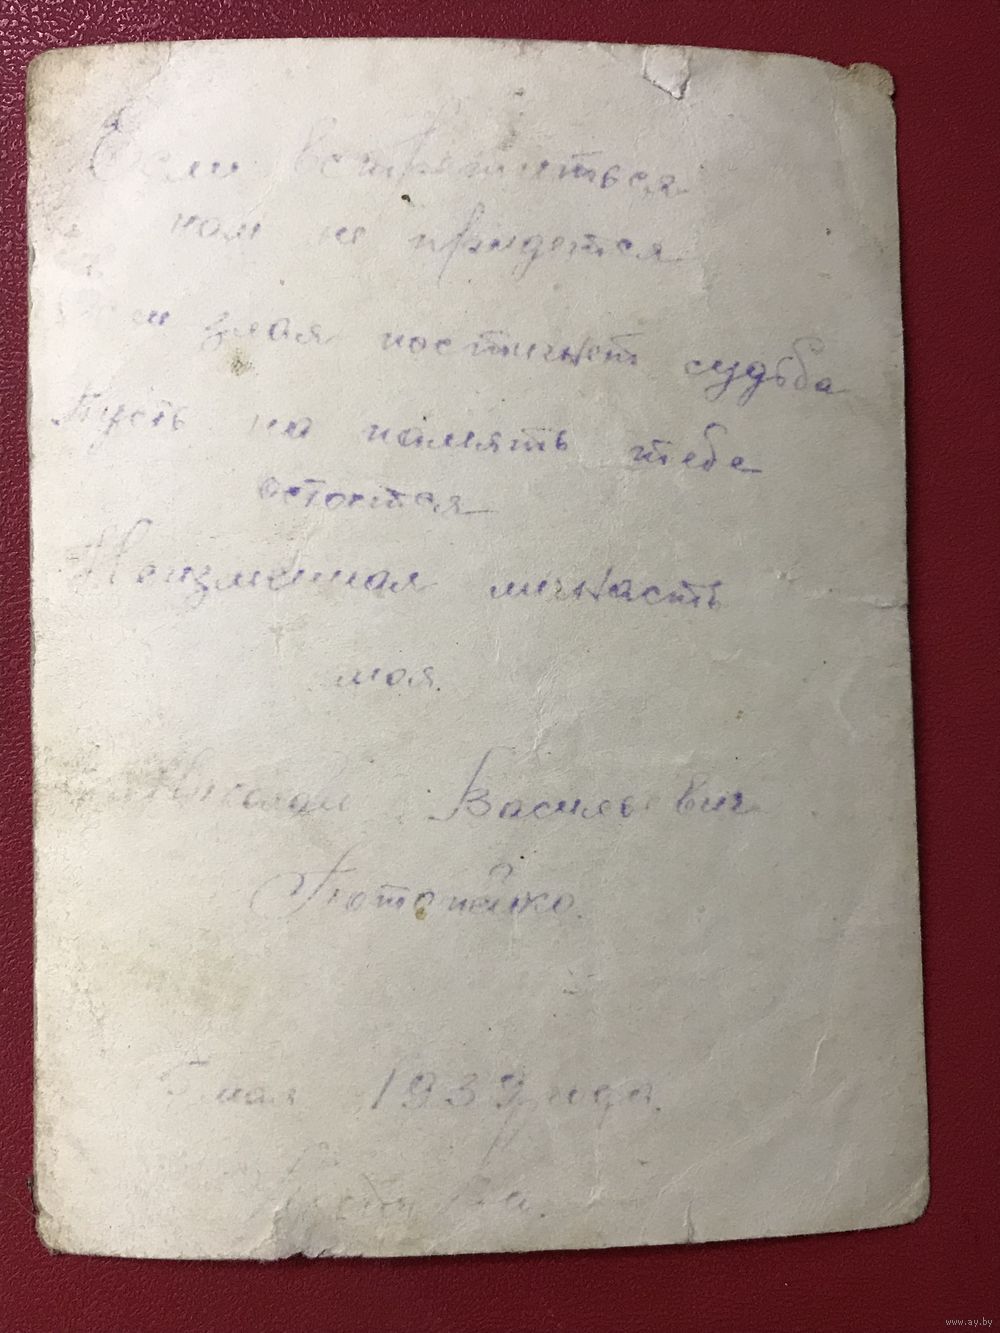 Если встретиться
нам не придется
злая постигнет судьба
Пусть на память тебе
остоится
Неизменная личность
моя.
Николай Васильевич
5 мая 1939 года.
www.ay.by